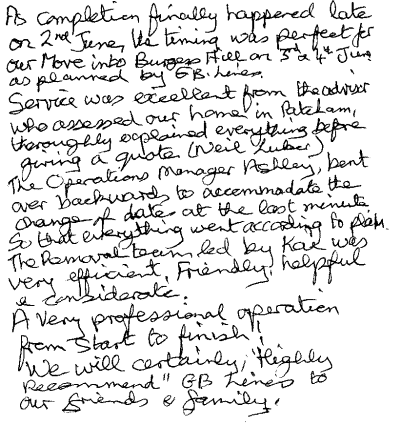 As completion finally happened late
on 2nd June, the timing was perfect for
our Move into Burgess Hill on 3rd & 4th June
as planned by GB Liners.
Service was excellent from the advisor
who assessed our home in Patcham,
thoroughly explained everything before
giving a quote (Neil Luber)
The Operations Manager Ashley, bent
over backwards to accommodate the
change of dates at the last minute
so that everything went according to plan.
The Removal team led by Karl was
very efficient, Friendly, helpful
& considerate.
A very professional operation
from Start to finish!
We will certainly, "Highly
Recommend" GB Liners to
our friends & family.